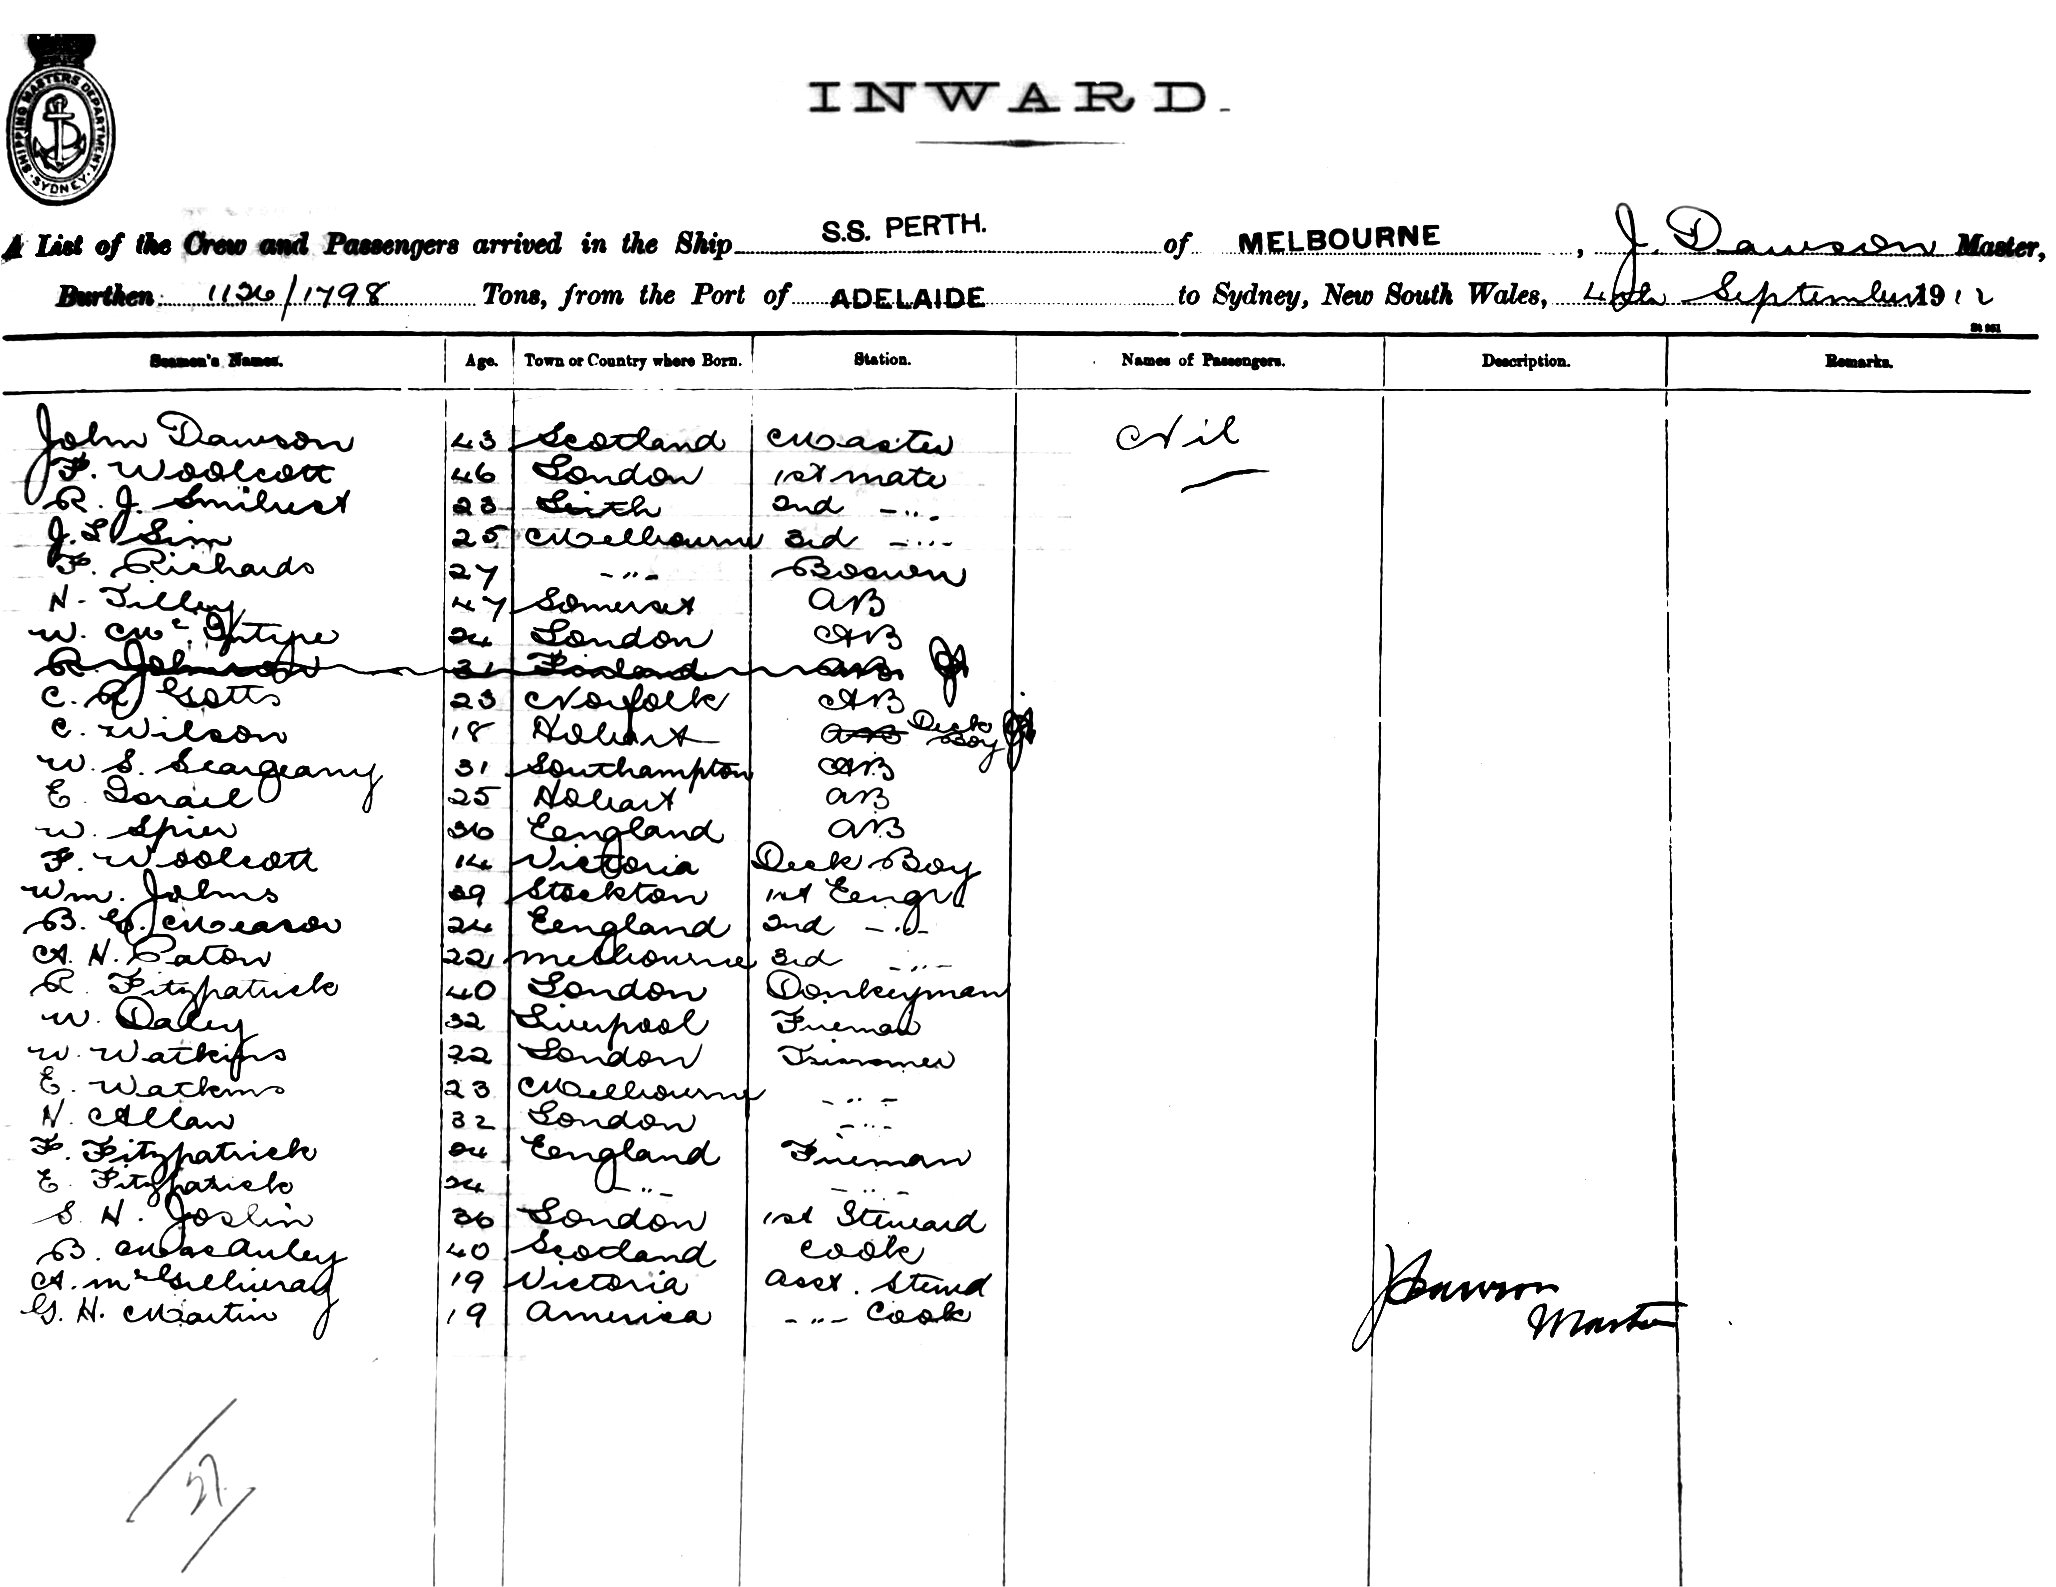 SHIPPING MASTERS DEPARTMENT. SYDNEY.
INWARD.
A List of the Crew and Passengers arrived in the Ship S.S. PERTH. of MELBOURNE, J. Dawson Master,
Burthen 1126/1798 Tons, from the Port of ADELAIDE to Sydney, New South Wales, 4th September 1912
Seamen's Names. Age. Town or Country where Born. Station. Names of Passengers. Description. Remarks.
John Dawson 43 Scotland Master Nil
F. Woolcott 46 London 1st mate
R. J. 23 Leith 2nd -"-
J. L Sim 25 Melbourne 3rd -"-
F. Richards 27 -"- Boswn
H. Tilley 47 Somerset AB
W. McIntyre 24 London AB
R. Johnson 31 Finland AB
C. R Gotts 23 Norfolk AB
C. Wilson 18 Hobart AB Deck Boy
W. S. Seargeany 31 Southampton AB
E. Israel 25 Hobart AB
W. Spier 36 Eengland AB
F. Woolcott 14 Victoria Deck Boy
Wm. Johns 39 Stockton 1st Eengr
B. G. Mearor 24 Eengland 2nd -"-
A. H. Paton 22 Melbourne 3rd -"-
R. Fitzpatrick 40 London Donkeyman
W. Daley 32 Liverpool Fireman
W. Watkins 22 London Trimmer
E. Watkins 23 Melbourne -"-
H. Allan 32 London -"-
F. Fitzpatrick 24 Eengland Fireman
E. Fitzpatrick 24 -"- -"-
S. H. Joslin 36 London 1st Steward
B. MacAuley 40 Scotland Cook
A. McGillivray 19 Victoria Asst. Stewd
G. H. Martin 19 America -"- Cook
J Dawson
Master